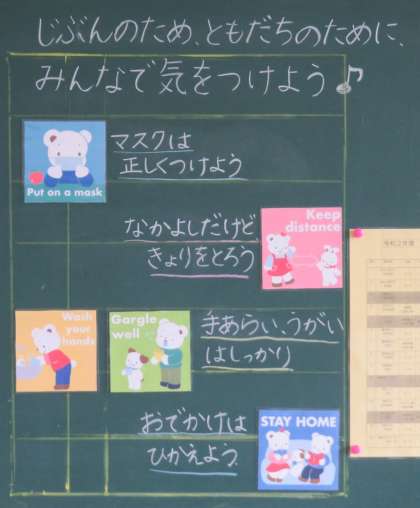 じぶんのため、ともだちのために、
みんなで気をつけよう♪
マスクは
正しくつけよう
Put on a mask
なかよしだけど
きょりをとろう
Keep
distance
Wash
your
hands
Gargle
well
手あらい、うがい
はしっかり
おでかけは
ひかえよう
STAY HOME